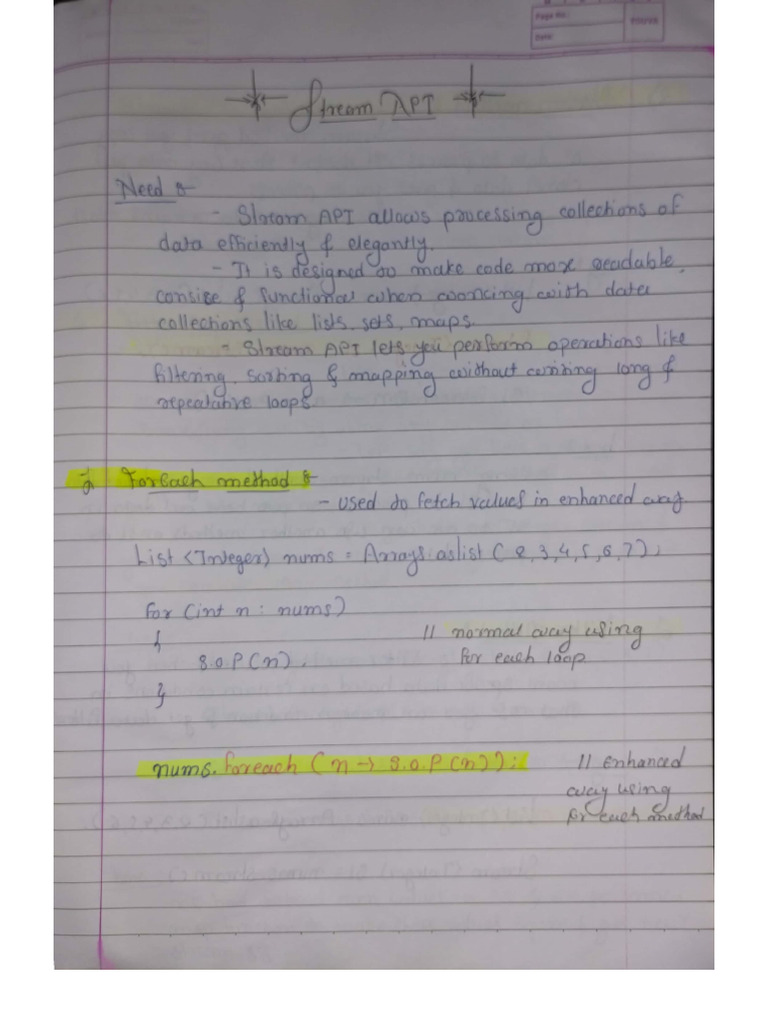 Page No.:
Date:
Stream API
Need :-
- Stream API allows processing collections of
data efficiently & elegantly.
- It is designed to make code more readable,
consise & functional when working with data
collections like lists, sets, maps.
- Stream API lets you perform operations like
filtering, sorting & mapping without writing long &
repeatative loops.
Foreach method :-
- used to fetch values in enhanced way
List <Integer> nums = Arrays.aslist ( 2, 3, 4, 5, 6, 7);
for (int n : nums)
{ // normal way using
S.O.P (n); for each loop
}
nums.foreach ( n -> S.O.P (n)); // enhanced
way using
for each method